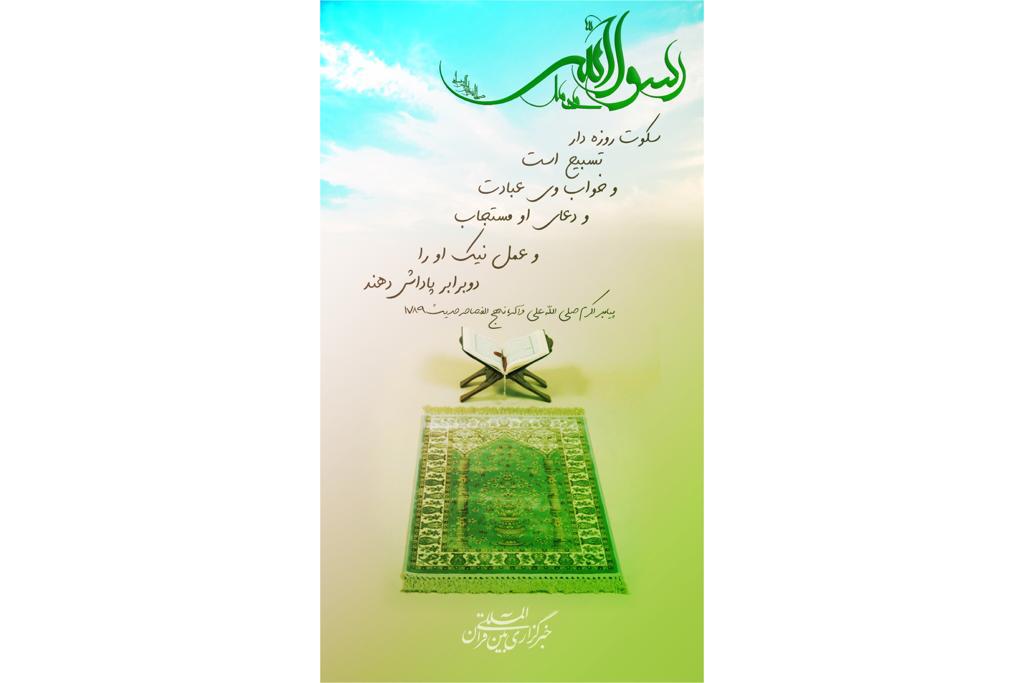 رسول الله
سکوت روزه دار
تسبیح است
و خواب وی عبادت
و دعای او مستجاب
و عمل نیک او را
دوبرابر پاداش دهند
پیامبر اکرم صلی الله علی و آله نهج الفصاحه حدیث ۱۷۸۹
خبرگزاری بین المللی قرآن